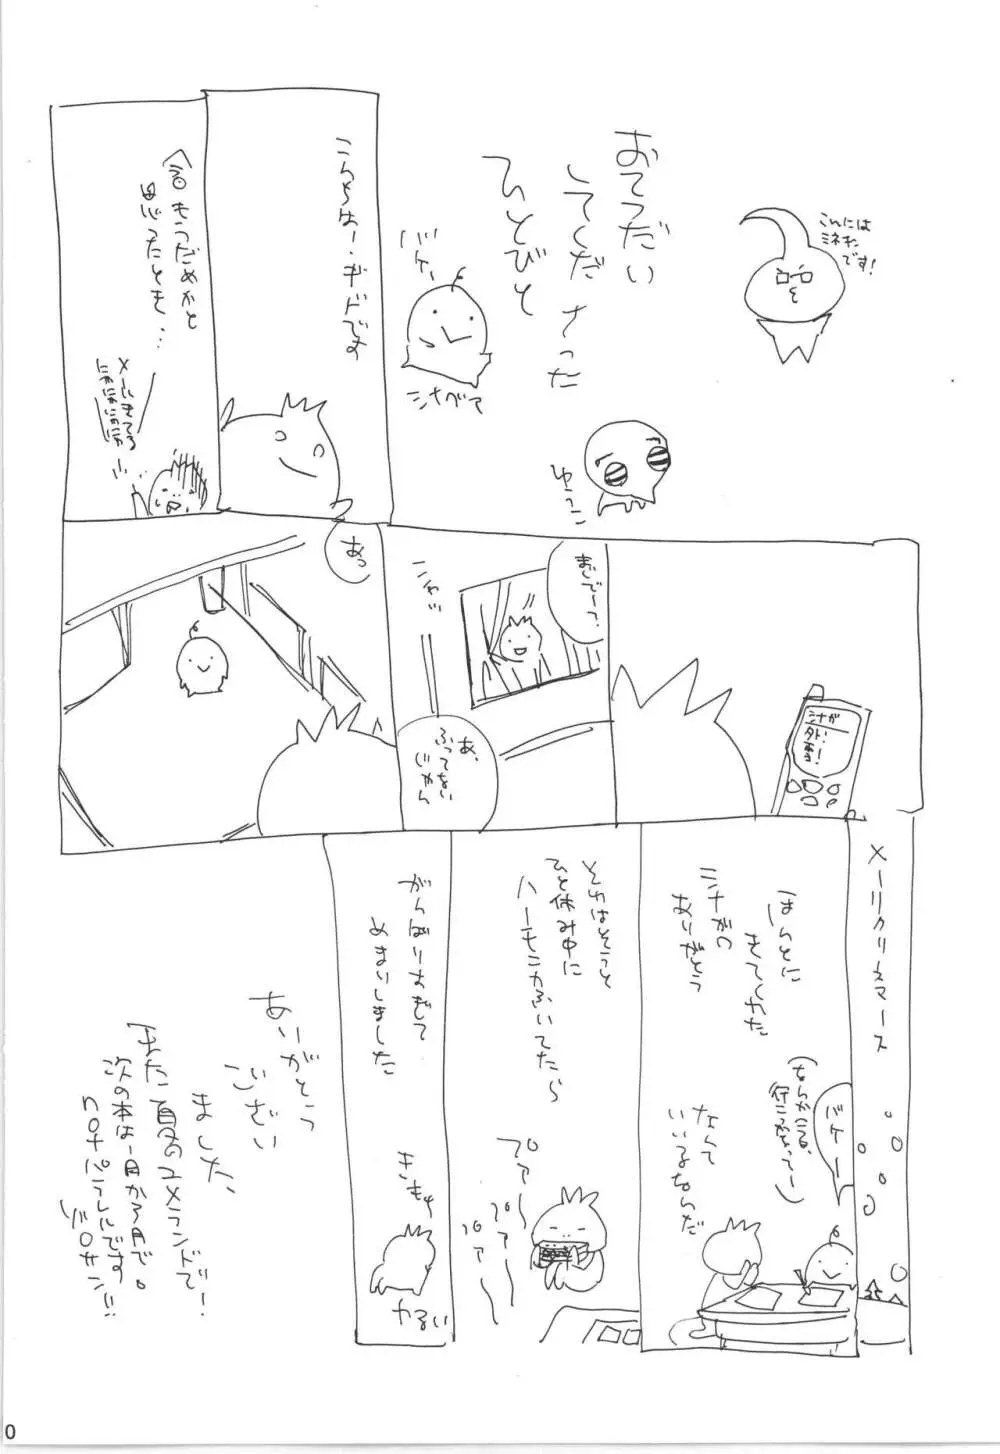 おてつだい
してくださった
ひとびと
こんには
ミネオ
です！
バケー
シナベて
ゆうこ
こんちはー、ギドです
もうだめかと
思ったとき…
メールきてる
にかにかにかにか
シナが
外！
まじでーっ？
こわっ
あ、
ふってない
じゃん
あっ
メーリクリスマース
ほんとに
きてくれた
シナが
ありがとう
バケーー
(なんかこう
行こうかなってー)
なんて
いいるなんだ
それはそうと
ひと休み中に
ハーモニカふいてたら
プァ〜
パァ〜
パァ〜
がんばりすぎて
めまいしました
きもち
わるい
ありがとう
ござい
ました、
また夏のユメランドで！
次の本は一月か3月で。
パラレルです